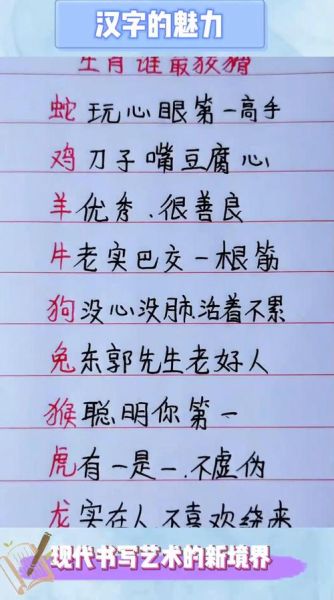 汉字的魅力
生肖谁最狡猾
蛇 玩心眼第一高手
鸡 刀子嘴豆腐心
羊 优秀.很善良
牛 老实巴交一根筋
狗 没心没肺活着不累
兔 东郭先生老好人
猴 聪明你第一
虎 有一是一.不虚伪
龙 实在人.不喜欢绕来
现代书写艺术的新境界